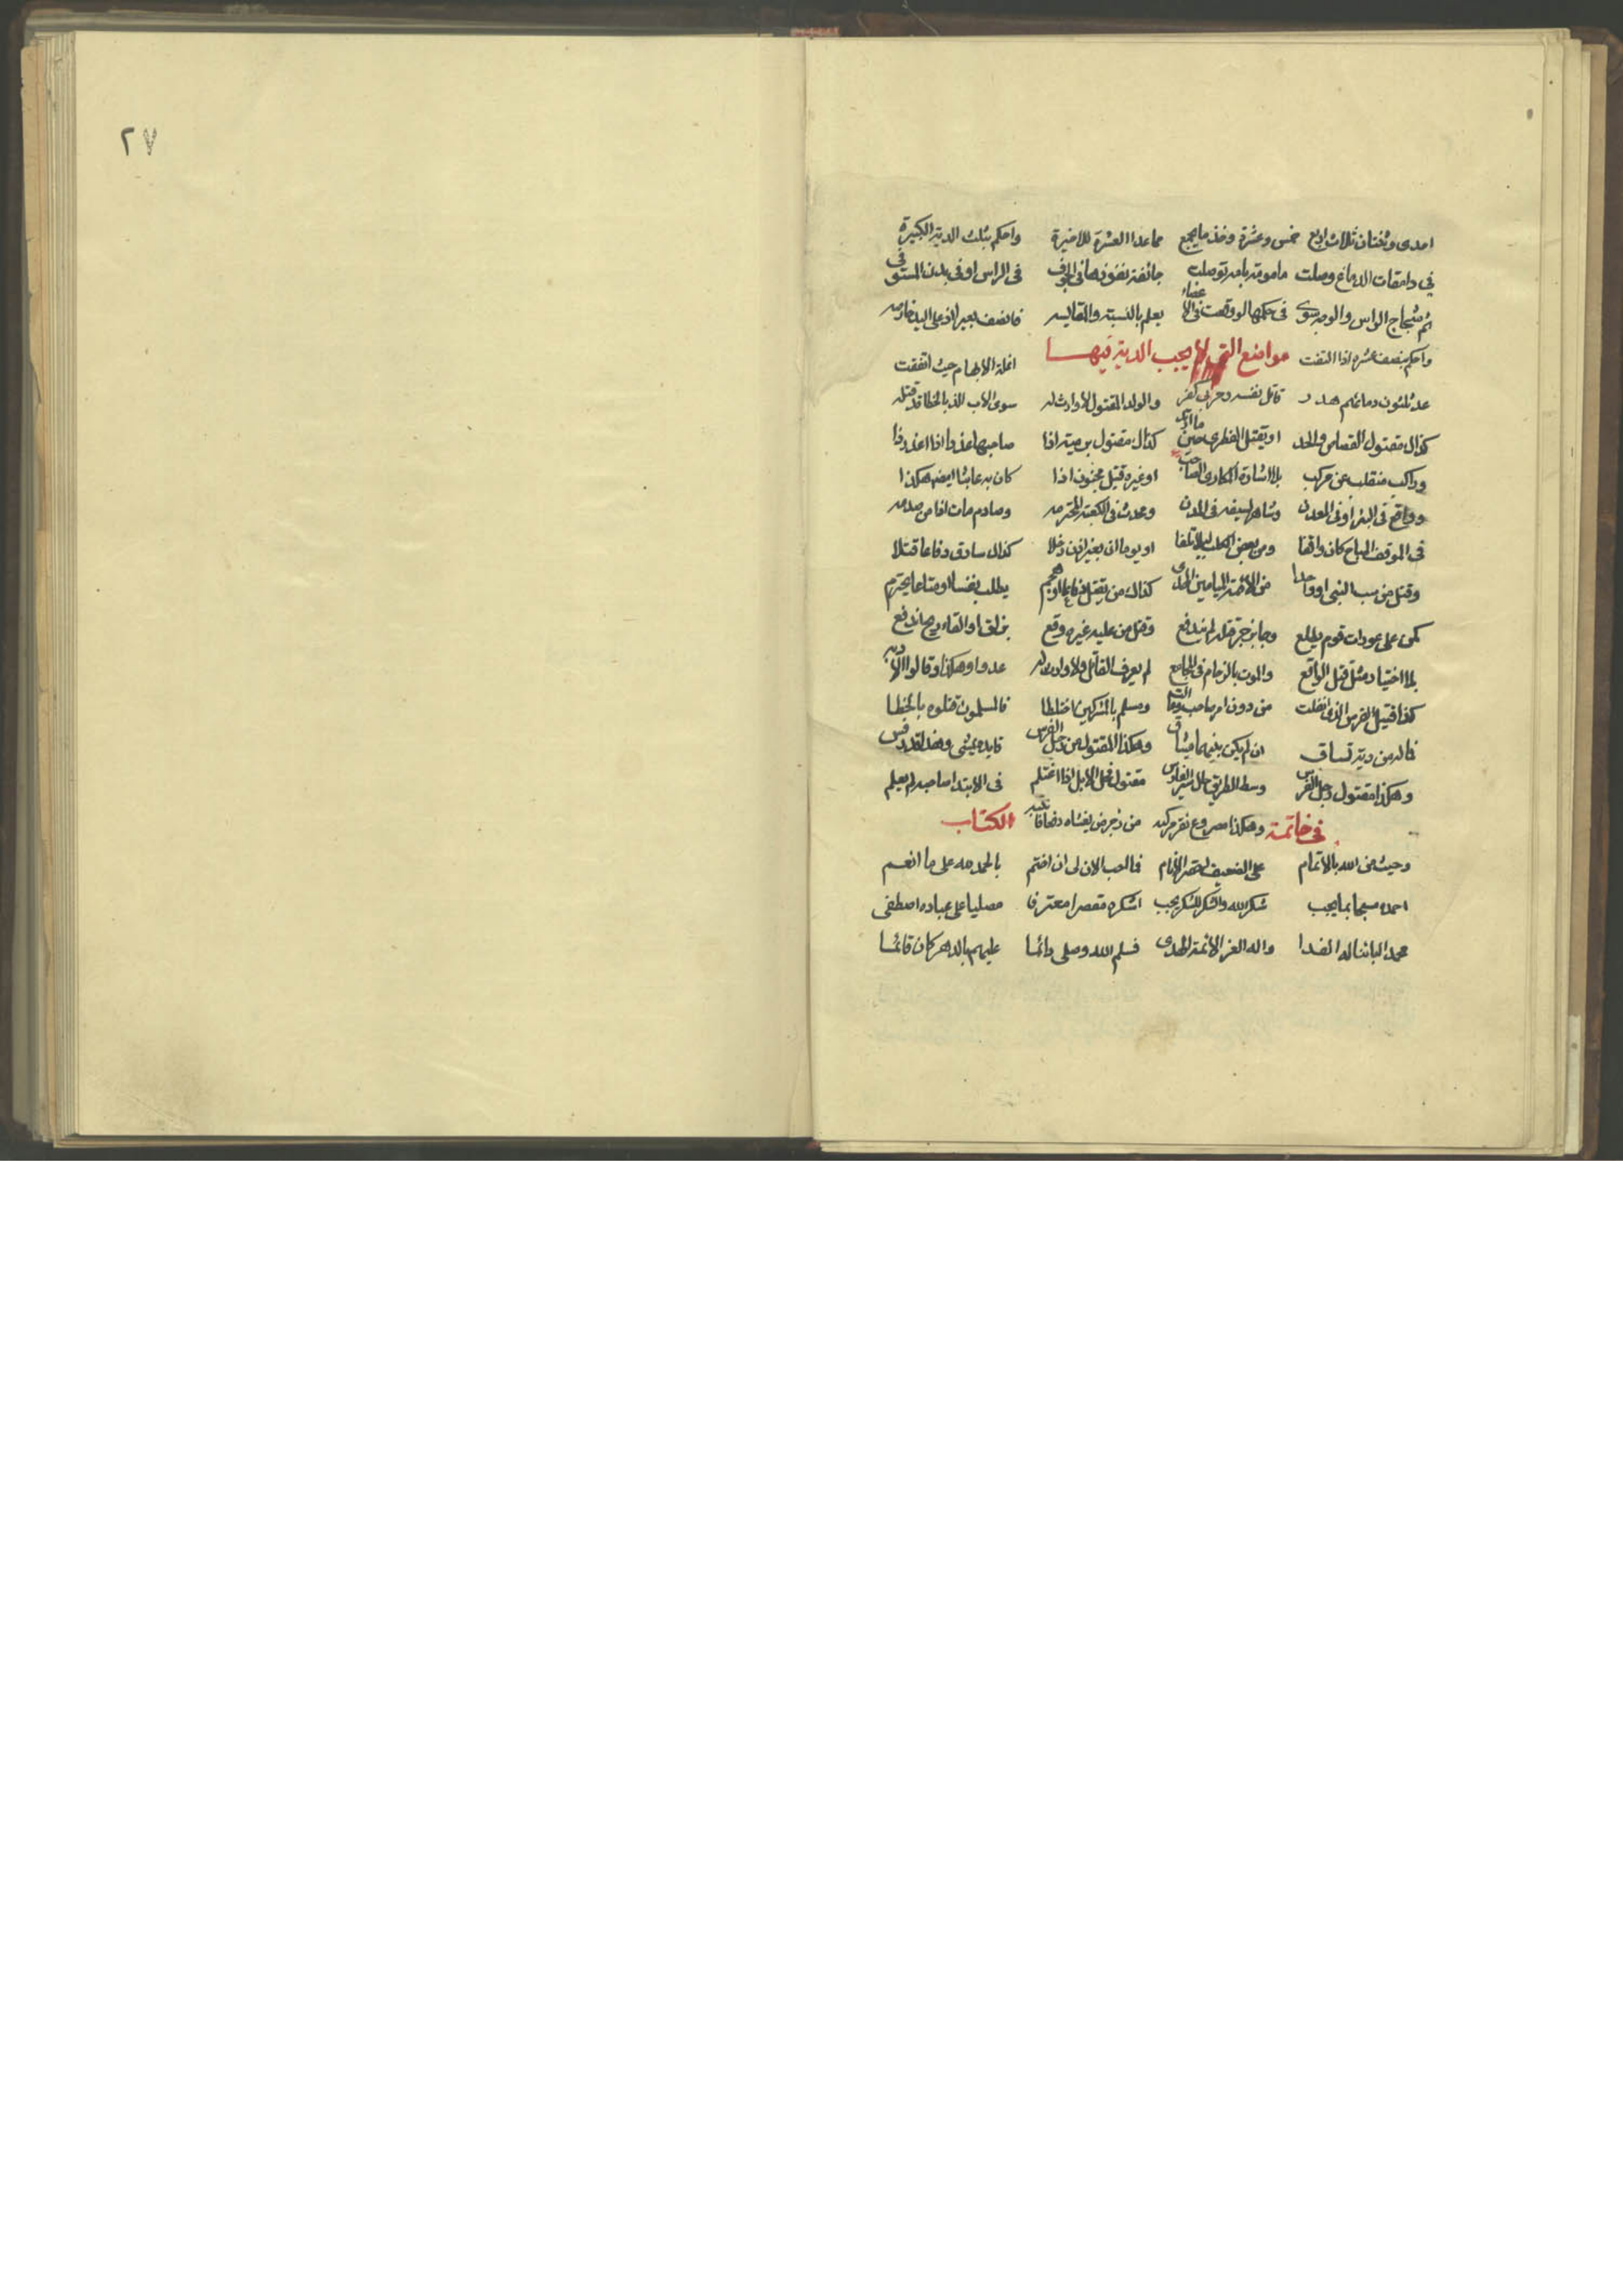 احدى وثنتان ثلاث اربع خمس وعشرة وخذ ما يجمع مما عدا العشرة للاخيرة واحكم بثلث الدية الكبيرة
في دامغات الدماغ وصلت مامومة بامه توصلت جائفة نفوذها فى الجوف فى الراس او فى بدن المستوفى
ثم شجاج الراس والوجه سوى فى حكمها لو وقعت فى الاعضاء يعلم بالنسبة والمقايسه فانصف بعير اذ على اليد خارصه
واحكم بنصف عشره اذا التفت مواضع التي لا يجب الدية فيها انملة الابهام حيث اتفقت
عد ثلثون دمائهم هدر قاتل نفسه وحربى كفر والولد المقتول لا وارث له سوى الاب الذ بالخطا قد قتله
كذاك مقتول القصاص والحد او يقتل الفطرى حين ما ارتد كذاك مقتول برميته اذا صاحبها عذرا اذا اعذر ذا
وراكب منقلب عن مركب بلا اشارة المكارى الصاحب او غيره قتيل مجنون اذا كان به عابثا ايضه هكذا
وواقع فى البئر او فى المعدن وشاهر لسيفه فى المدن ومحدث فى الكعبة المحترمه وصادم مات اذا من صدمه
فى الموقف المباح كان واقفا ومن بعض الكلب ليلا تلفا او يوما ان بغير اذن دخلا كذاك سارق دفاعا قتلا
وقتل من سب النبى او واحدا من الائمة الميامين الهدى كذاك من يقتل دفاعا اذ هجم يطلب نفسا او متاعا يحترم
كمن على عورات قوم يطلع وجايز جرحه لم يندفع وقتل من عليه غيره وقع بزلق او القاه ريح اندفع
بلا اختياد مثل قتل الواقع والموت بالزحام فى المجامع لم يعرف القاتل ولا وارث له عدوا وهكذا وقالوا لا دية
كذا قتيل الفرس الذى انفلت من دون امر صاحب ومسلم بالمشركين اختلطا فالمسلمون قتلوه بالخطا
فما له من دية تساق ان لم يكن بينهما ميثاق وهكذا المقتول من رجل الفرس قايده يمشى
وهكذا مقتول رجل الفرس وسط الطريق حال سير الفارس مقتول فحل الابل اذا اغتلم فى الابتدا صاحبه لم يعلم
في خاتمة وهكذا مصروع نفر مركبه من زجر من يغشاه دفعا الكتاب
وحيث من الله بالاتمام على الضعيف احقر الانام فالحب الان لى ان اختم بالحمد لله على ما انعم
احمده سبحا بما يجب شكر الله والشكر للشكر يجب اشكره مقصرا معترفا مصليا على عباده اصطفى
محمد الباننا له الفدا واله الغر الائمة الهدى فسلم الله وصلى دائما عليهم بالدهر كان قائما
٢٧